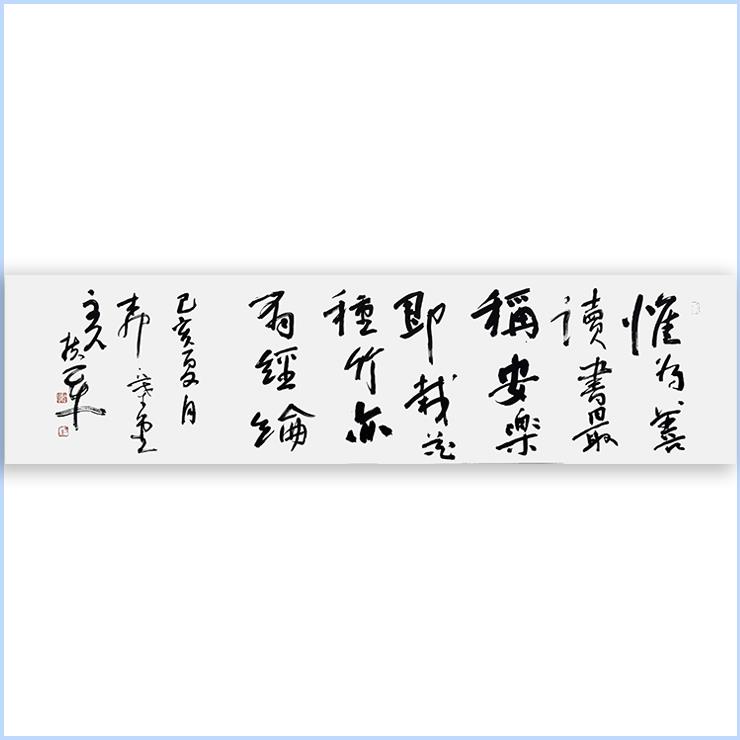 惟為善
讀書最
稱安樂
即栽花
種竹亦
有經綸
己亥夏月
主人